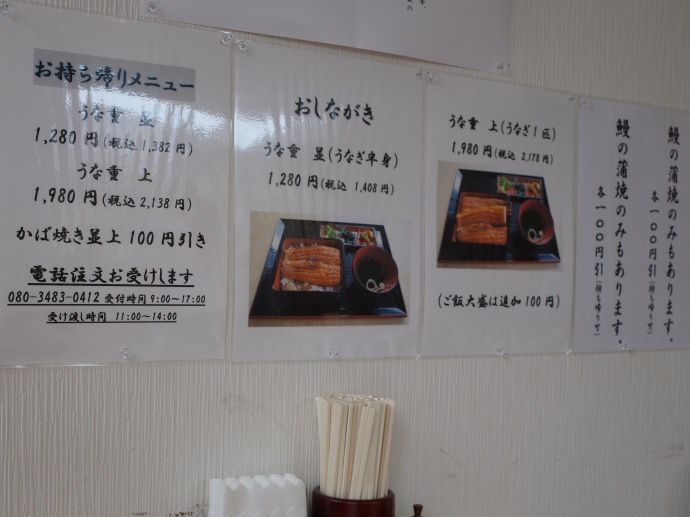 お持ち帰りメニュー
うな重 並
1,280円(税込 1,382円)
うな重 上
1,980円(税込 2,138円)
かば焼き並上100円引き
電話注文お受けします
080-3483-0412 受付時間 9:00～17:00
受け渡し時間 11:00～14:00
おしながき
うな重 並(うなぎ半身)
1,280円(税込 1,408円)
うな重 上(うなぎ1匹)
1,980円(税込 2,178円)
(ご飯大盛は追加100円)
鰻の蒲焼のみもあります。
各一〇〇円引(持ち帰り可)
鰻の蒲焼のみもあります。
各一〇〇円引(持ち帰り可)